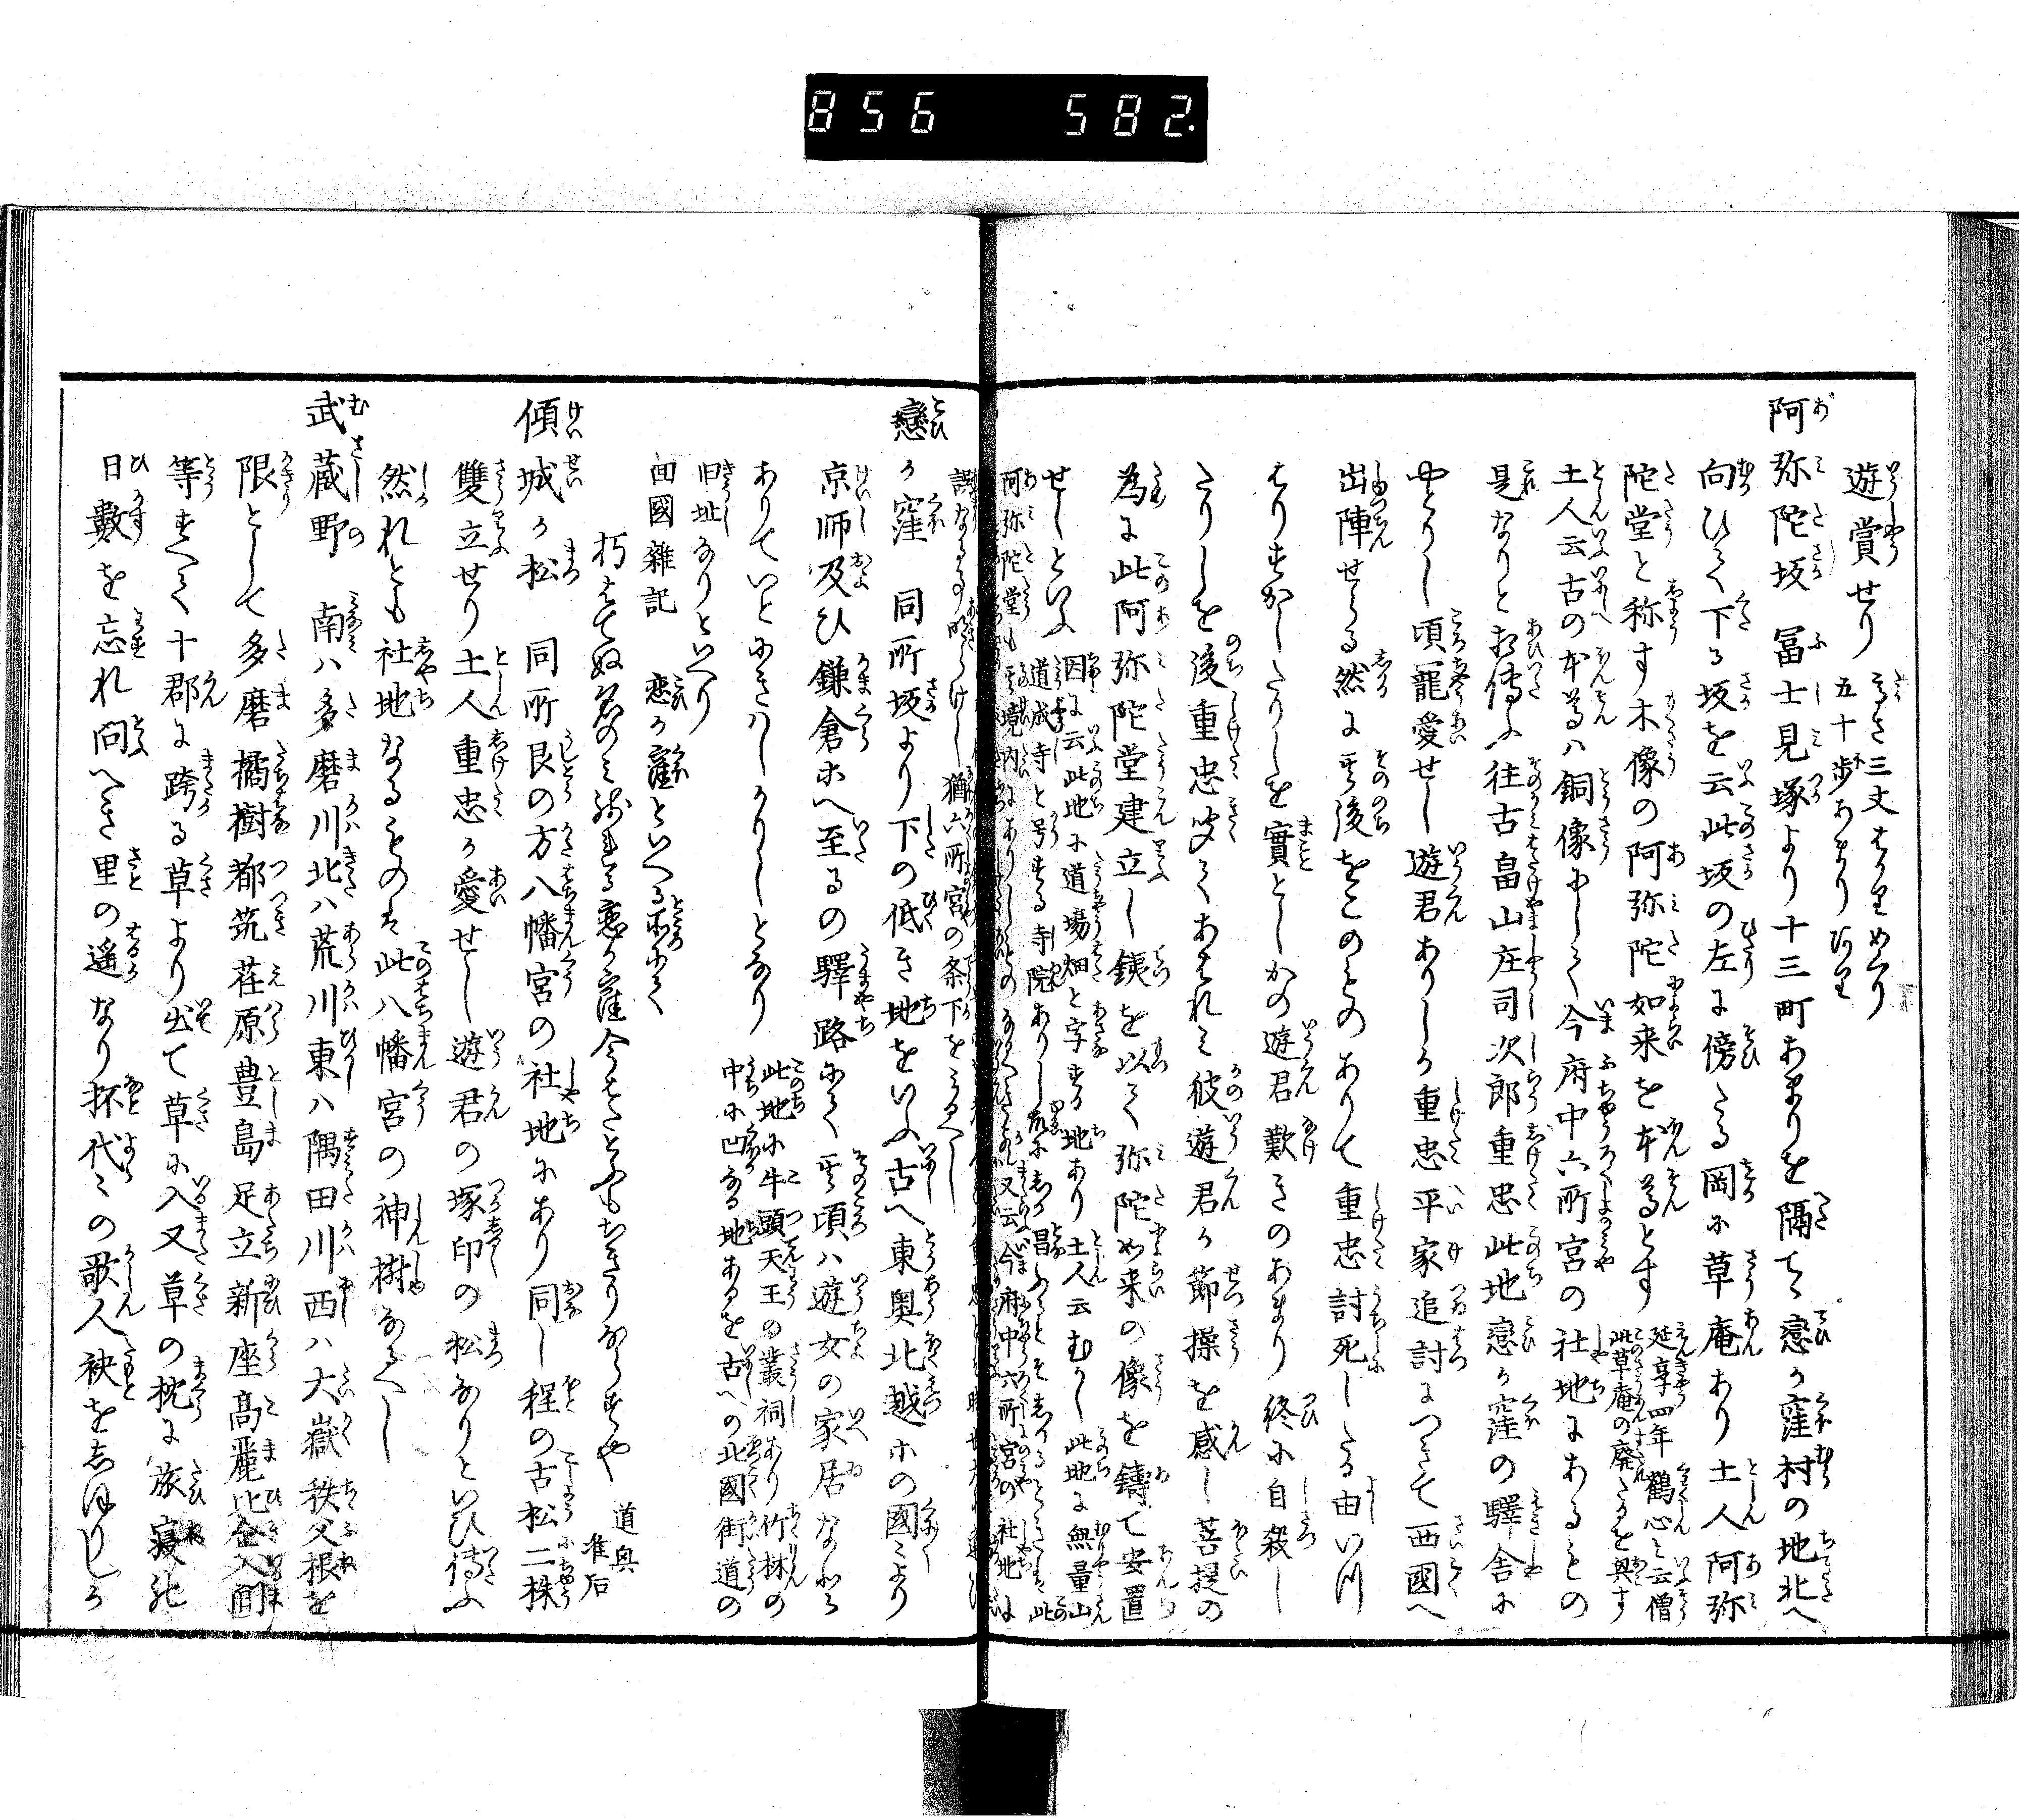 856 582.
遊賞せり 高さ三丈はかりめくり
五十歩あまりあり
阿弥陀坂 冨士見塚より十三町あまりを隔てゝ戀か窪村の地北へ
向ひて下る坂を云此坂の左に傍たる岡に草庵あり土人阿弥
陀堂と称す木像の阿弥陀如来を本尊とす 延享四年鶴心と云僧
此草庵の廃たるを興す
土人云古の本尊ハ銅像にして今府中六所宮の社地にあるもの
是なりと相傳ふ往古畠山庄司次郎重忠此地戀か窪の驛舎に
やとりし頃寵愛せし遊君ありしか重忠平家追討につきて西國へ
出陣せる然に其後をこのものありて重忠討死したる由いひ
はりすかしたりしを實としかの遊君歎きのあまり終に自殺し
たりしを後重忠聞てあはれみ彼遊君か節操を感し菩提の
為に此阿弥陀堂建立し銕を以て弥陀如来の像を鋳て安置
せしといふ 因に云此地に道場畑と字する地あり土人云むかし此地に無量山
道成寺と号する寺院ありし
戀か窪 同所坂より下の低き地をいふ古へ東奥北越等の國々より
京師及ひ鎌倉等へ至るの驛路にて其頃ハ遊女の家居なんと
ありていとにきハしかりしとなり 此地に牛頭天王の叢祠あり竹林の
中に凹なる地あるを古への北國街道の
旧址なりといへり
回國雑記 恋か窪といへる所にて
朽はてぬ名のミ残れる恋か窪今はたとふもちきりならすや 道奥
准后
傾城か松 同所艮の方八幡宮の社地にあり同し程の古松二株
雙立せり土人重忠か愛せし遊君の塚印の松なりといひ傳ふ
然れとも社地なるものは此八幡宮の神樹なるへし
武蔵野 南ハ多磨川北ハ荒川東ハ隅田川西ハ大嶽秩父根を
限として多磨橘樹都筑荏原豊島足立新座高麗比企入間
等すへて十郡に跨る草より出て草に入又草の枕に旅寝の
日數を忘れ問へき里の遥なり抔代々の歌人袂をしほりしか